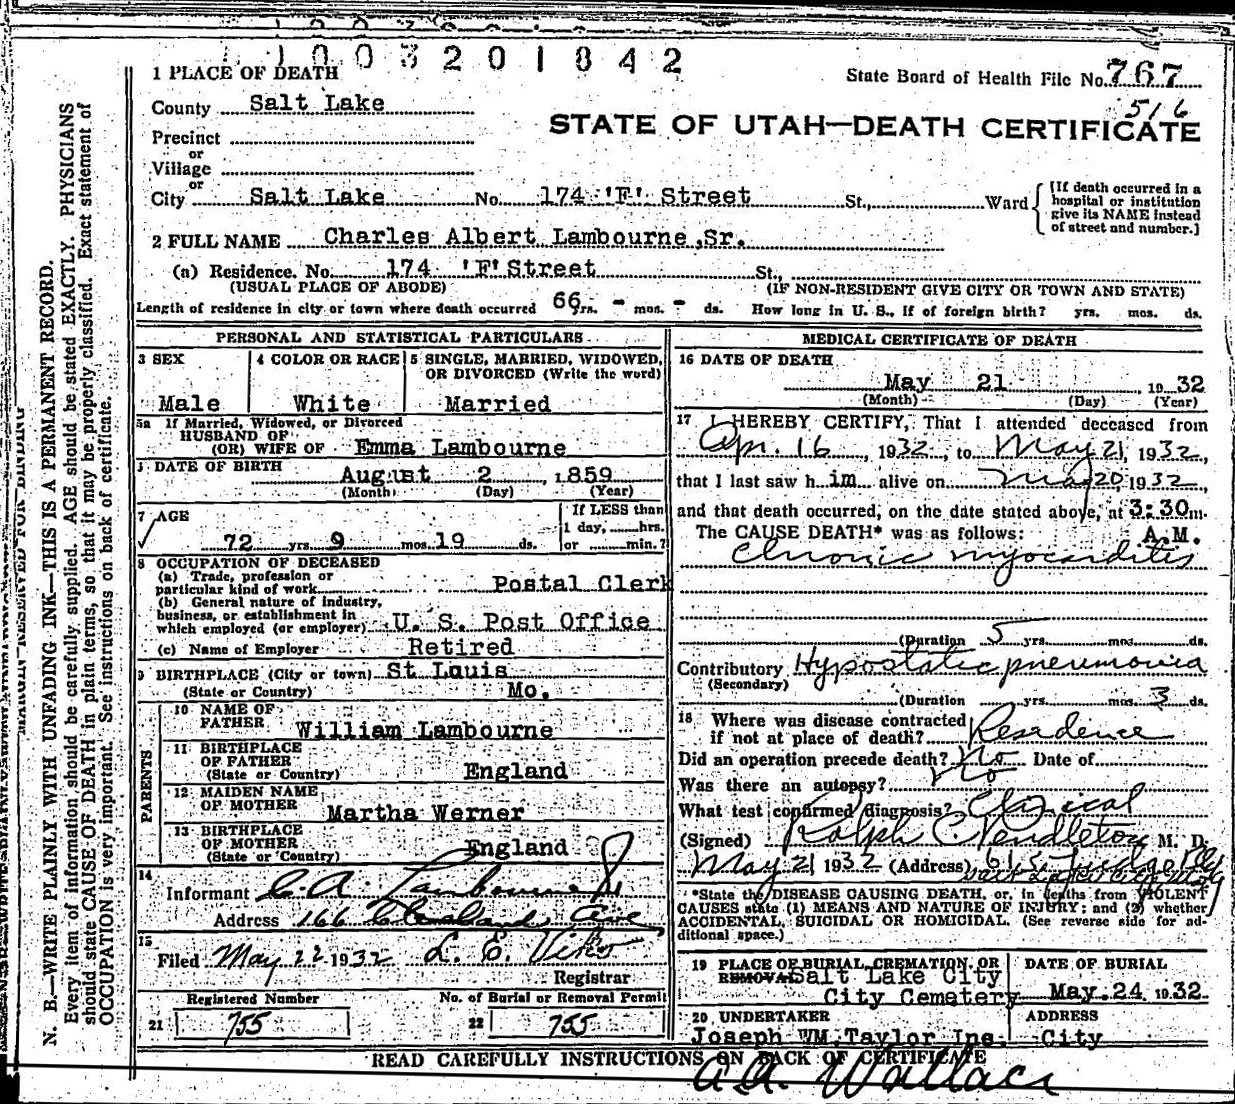 1003201842
1 PLACE OF DEATH
State Board of Health File No. 767
516
County Salt Lake
STATE OF UTAH—DEATH CERTIFICATE
Precinct
or
Village
or
City Salt Lake No. 174 'F' Street St., Ward
[If death occurred in a hospital or institution give its NAME instead of street and number.]
2 FULL NAME Charles Albert Lambourne, Sr.
(a) Residence. No. 174 'F' Street St.,
(USUAL PLACE OF ABODE) (IF NON-RESIDENT GIVE CITY OR TOWN AND STATE)
Length of residence in city or town where death occurred 66 yrs. - mos. - ds. How long in U. S., if of foreign birth? yrs. mos. ds.
PERSONAL AND STATISTICAL PARTICULARS
3 SEX
Male
4 COLOR OR RACE
White
5 SINGLE, MARRIED, WIDOWED, OR DIVORCED (Write the word)
Married
5a If Married, Widowed, or Divorced
HUSBAND OF
(OR) WIFE OF Emma Lambourne
DATE OF BIRTH
August 2, 1859
(Month) (Day) (Year)
7 AGE
72 yrs. 9 mos. 19 ds.
If LESS than
1 day, hrs.
or min.?
8 OCCUPATION OF DECEASED
(a) Trade, profession or
particular kind of work Postal Clerk
(b) General nature of industry,
business, or establishment in
which employed (or employer) U. S. Post Office
(c) Name of Employer Retired
9 BIRTHPLACE (City or town) St Louis
(State or Country) Mo.
PARENTS
10 NAME OF
FATHER William Lambourne
11 BIRTHPLACE
OF FATHER
(State or Country) England
12 MAIDEN NAME
OF MOTHER
Martha Werner
13 BIRTHPLACE
OF MOTHER
(State or Country) England
14
Informant C. A. Lambourne Jr
Address 166 Cleveland Ave
15
Filed May 22 1932 L. E. Viko
Registrar
Registered Number
21 755
No. of Burial or Removal Permit
22 755
MEDICAL CERTIFICATE OF DEATH
16 DATE OF DEATH
May 21 1932
(Month) (Day) (Year)
17 I HEREBY CERTIFY, That I attended deceased from
Apr. 16, 1932, to May 21, 1932,
that I last saw him alive on May 20, 1932,
and that death occurred, on the date stated above, at 3:30 m.
The CAUSE DEATH* was as follows: A.M.
Chronic myocarditis
(Duration 5 yrs. mos. ds.
Contributory Hypostatic pneumonia
(Secondary)
(Duration yrs. mos. 3 ds.
18 Where was disease contracted
if not at place of death? Residence
Did an operation precede death? No Date of
Was there an autopsy? No
What test confirmed diagnosis? Clinical
(Signed) Ralph C. Pendleton M. D.
May 21 1932 (Address)
*State the DISEASE CAUSING DEATH, or, in deaths from VIOLENT
CAUSES state (1) MEANS AND NATURE OF INJURY; and (2) whether
ACCIDENTAL, SUICIDAL OR HOMICIDAL. (See reverse side for ad-
ditional space.)
19 PLACE OF BURIAL, CREMATION, OR
REMOVAL Salt Lake City
City Cemetery
DATE OF BURIAL
May. 24 1932
20 UNDERTAKER
Joseph WM. Taylor Inc.
ADDRESS
City
READ CAREFULLY INSTRUCTIONS ON BACK OF CERTIFICATE
A. A. Wallace
N. B.—WRITE PLAINLY WITH UNFADING INK—THIS IS A PERMANENT RECORD.
Every item of information should be carefully supplied. AGE should be stated EXACTLY. PHYSICIANS
should state CAUSE OF DEATH in plain terms, so that it may be properly classified. Exact statement of
OCCUPATION is very important. See instructions on back of certificate.
MARGIN RESERVED FOR BINDING